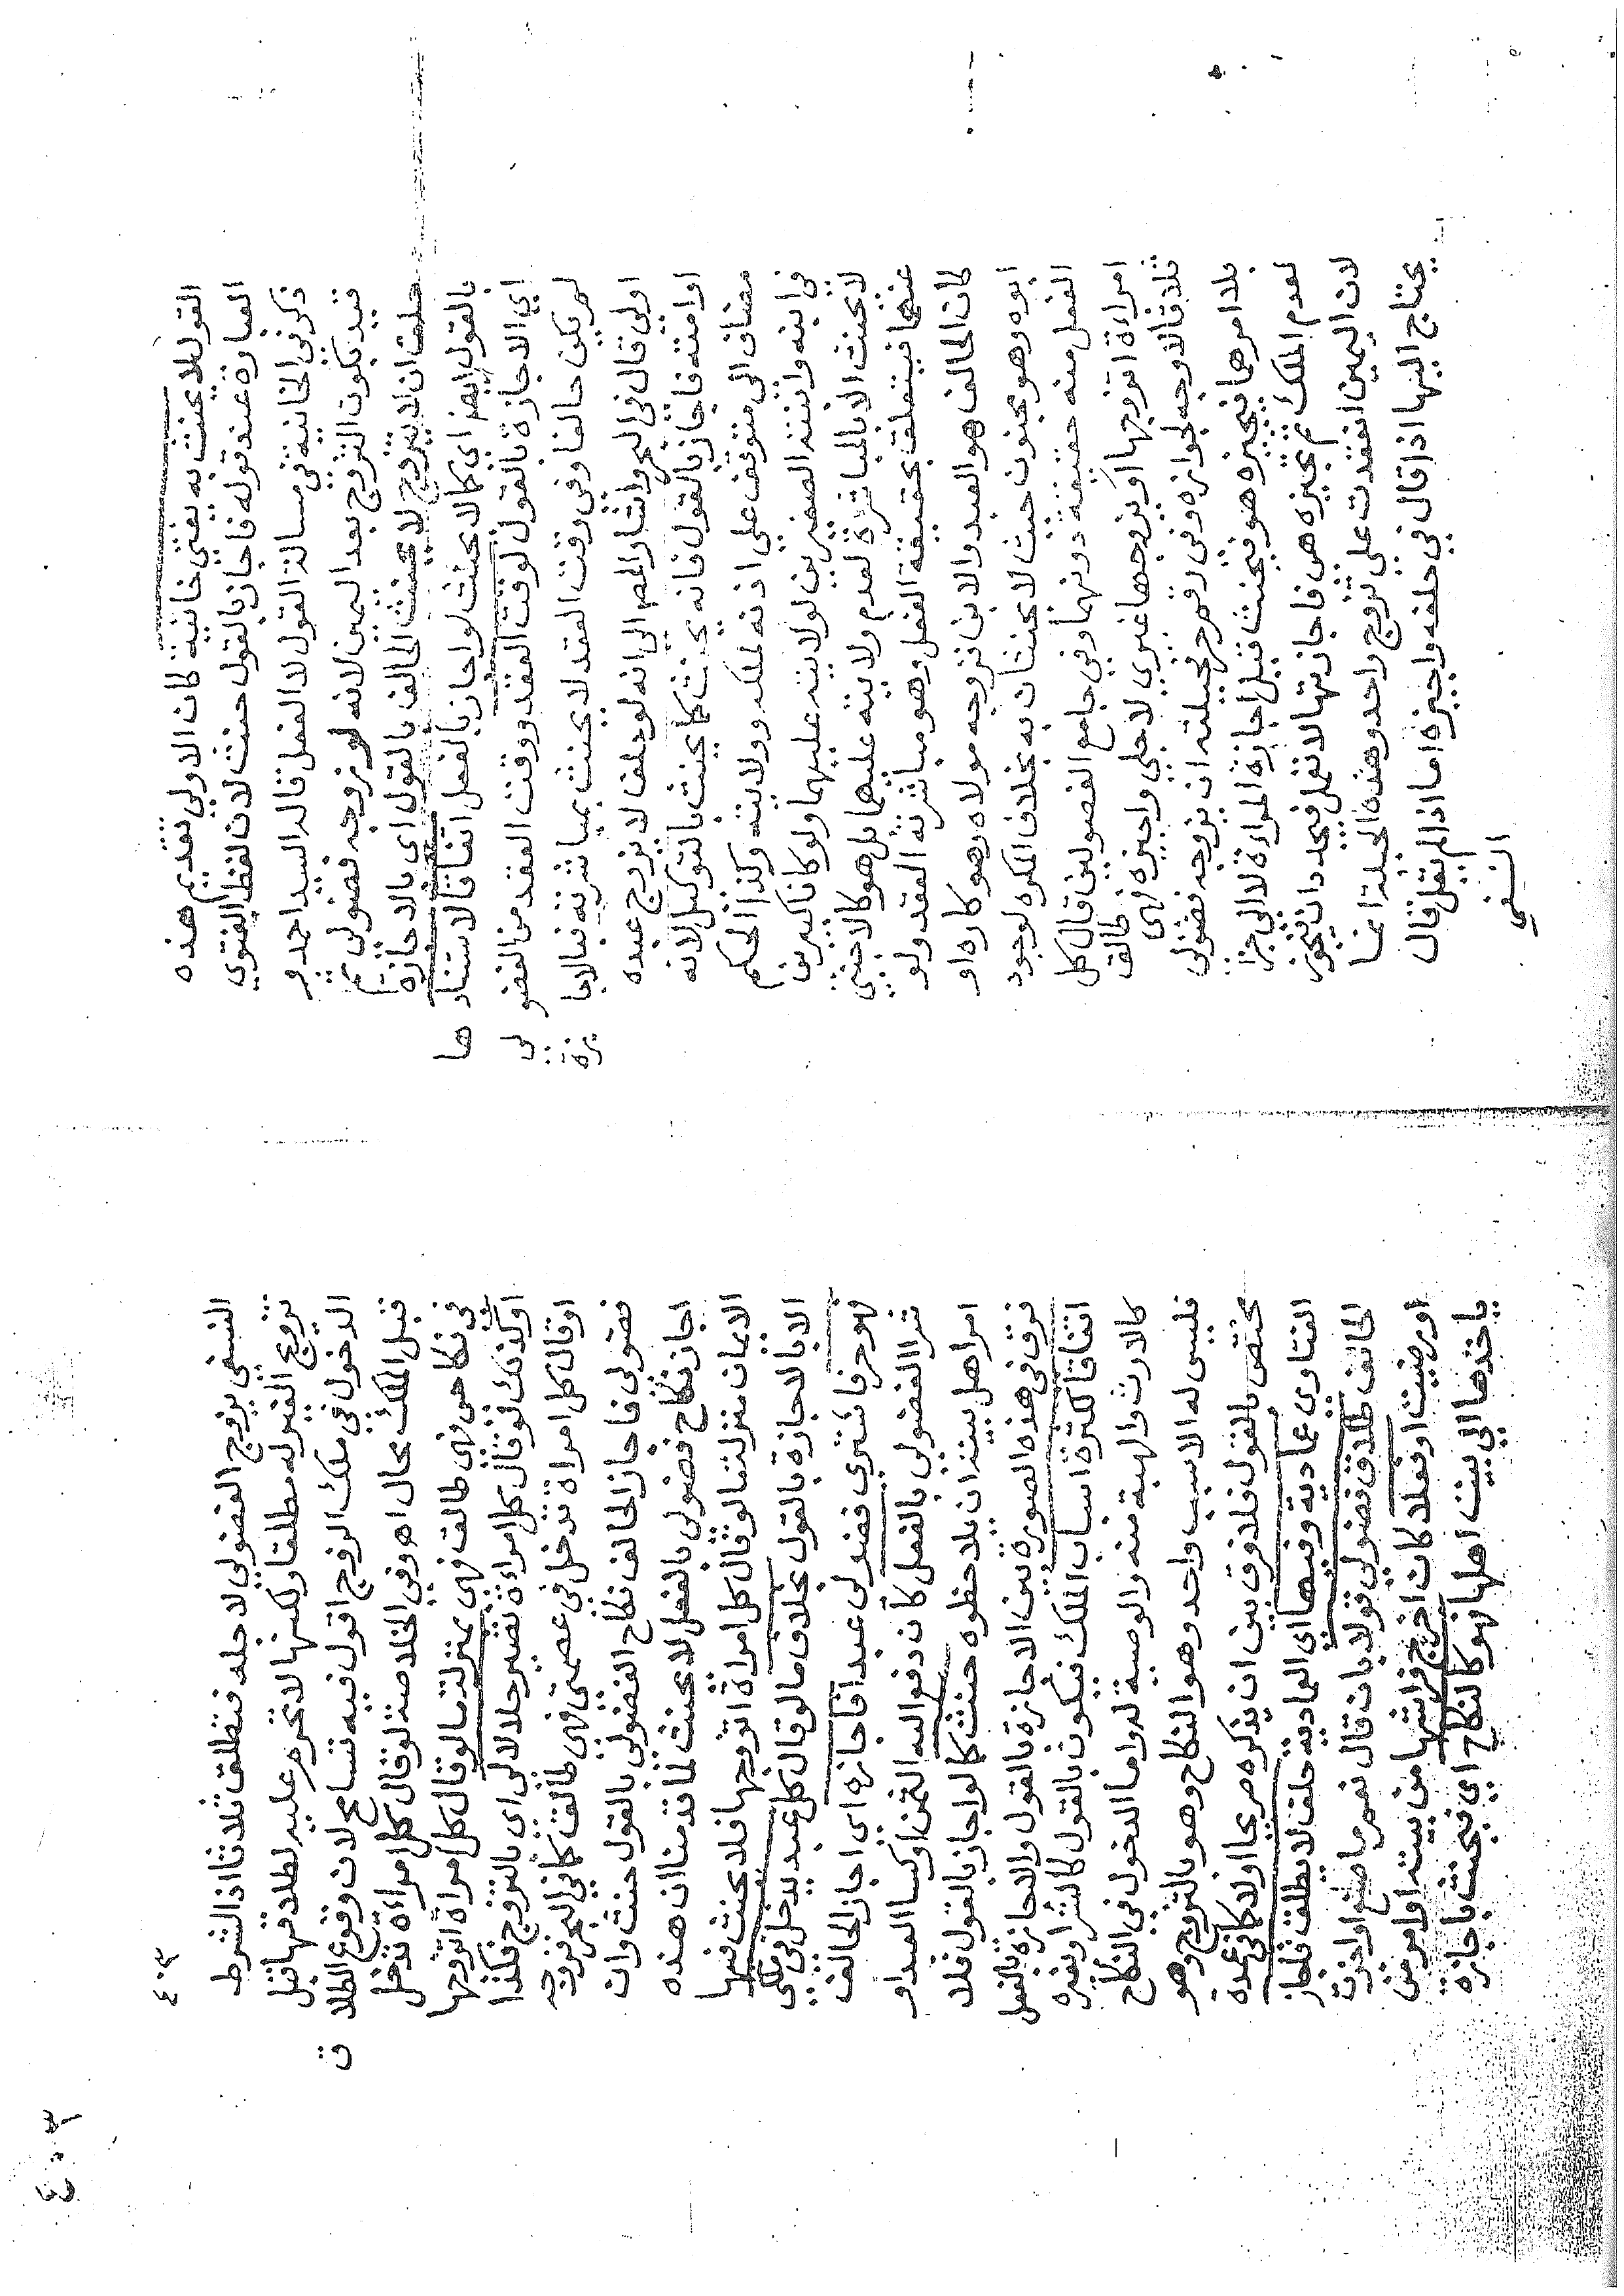 القول لا يحنث به يفتي خانية كان الاولي تقديم هذه
العبارة عند قوله فاجاز بالقول حنث لان لفظ الفتوي
ذكر في الخانية في مسالة القول لا الفعل قاله السيد احمد و
قيد بكون التزوج بعد اليمين لانه لو زوجه فضولي ثم
حلف ان لا يتزوج لا يحنث الحالف بالقول اي بالاجازة
بالقول ايض اي كما لا يحنث لو اجاز بالفعل اتفاقا لاستنادها
اي الاجازة بالقول لوقت العقد ووقت العقد من الفضولي
لم يكن حالفا وفي وقت العقد لا يحنث بمباشرته فبالاجازة
اولي قال في البحر واشار المص الي انه لو حلف لا يزوج عبده
او امته فاجاز بالقول فانه يحنث كما يحنث بالتوكيل لانه
مضاف الي متوقف على اذنه لملكه وولايته وكذا الحكم
في ابنه وابنته الصغيرين لولايته عليهما ولو كانا كبيرين
لا يحنث الا بالمباشرة لعدم ولايته عليهما بل هو كالاجنبي
عنهما فيتعلق بحقيقة الفعل وهو مباشرته العقد ولو
كان الحالف هو العبد والابن فزوجه مولاه وهو كاره او
ابوه وهو مجنون حيث لا يحنثان به بخلاف المكره لوجود
الفعل منه حقيقة دونهما وفي جامع الفصولين قال كل
امراءة اتزوجها او يزوجها غيري لاجلي واجيزه فهي طالق
ثلاثا لا وجه لجوازه وفي رقم رجخ حيلته ان يزوجه فضولي
بلا امرهما فيجيزه هو فيحنث قبل اجازة المراءة لا الي جزا
لعدم الملك ثم تجيزه هي فاجازتها لا تعمل فيجددان فيجوز
لان اليمين انعقدت علي تزوج واحد وهذه الحيلة انما
يحتاج اليها اذا قال في حلفه واجيزه اما اذا لم يقل قال
النسفي
٤٠٣
النسفي يزوج الفضولي لاجله فتطلق ثلاثا اذا الشرط
تزويج الغير له مطلقا ولكنها لا تحرم عليه لطلاقها قبل
الدخول في ملك الزوج اقول فيه تسامح لان وقوع الطلاق
قبل الملك محال اه وفي الخلاصة لو قال كل امراءة تدخل
في نكاحي فهي طالق فهي بمنزلة ما لو قال كل امراة اتزوجها
او كذلك لو قال كل امراءة تصير حلالا لي اي بالتزوج فكذا
او قال كل امراة تدخل في عصمتي فهي طالق كافي البحر فزوجه
فضولي فاجاز الحالف نكاح الفضولي بالقول حنث وان
اجاز نكاح فضولي بالفعل لا يحنث لما قدمنا ان هذه
الايمان منزلة ما لو قال كل امراة اتزوجها فلا يحنث فيها
الا بالاجازة بالقول بخلاف ما لو قال كل عبد يدخل في ملكي
فهو حر فاشتري فضولي عبدا فاجازه اي اجاز الحالف
شرا الفضولي بالفعل كان دفع اليه الثمن او كسا العبد او
امر اهل بيته ان يلاحظوه حنث كما لو اجاز بالقول فلا
فرق في هذه الصورة بين الاجازة بالقول والاجازة بالفعل
اتفاقا لكثرة اسباب الملك فيكون بالقول كالشرا وبغيره
كالارث والهبة منه والوصية له واما الدخول في النكاح
فليس له الا سبب واحد وهو النكاح وهو بالتزوج وهو
مختص بالقول فلا فرق بين ان يذكره صريحا او لا كافي عمده
الفتاوي عمادية وفيها اي العمادية حلف لا يطلق فاجاز
الحالف طلاق فضولي قولا بان قال نعم ما صنع او اجزت
او رضيت او فعلا كان اخرج فراشها من بيته او امر من
ياخذها الي بيت اهلها فهو كالنكاح اي فيحنث باجازه